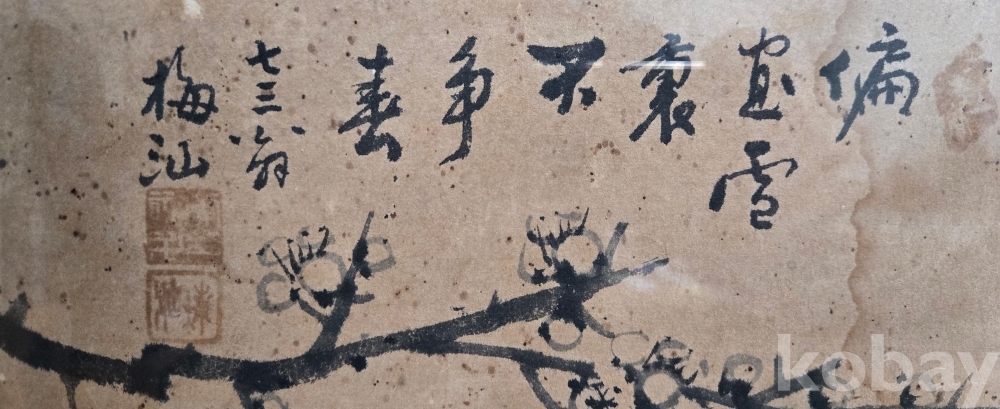 偏
宜雪
裏
不
爭
春
七三翁
梅汕
kobay